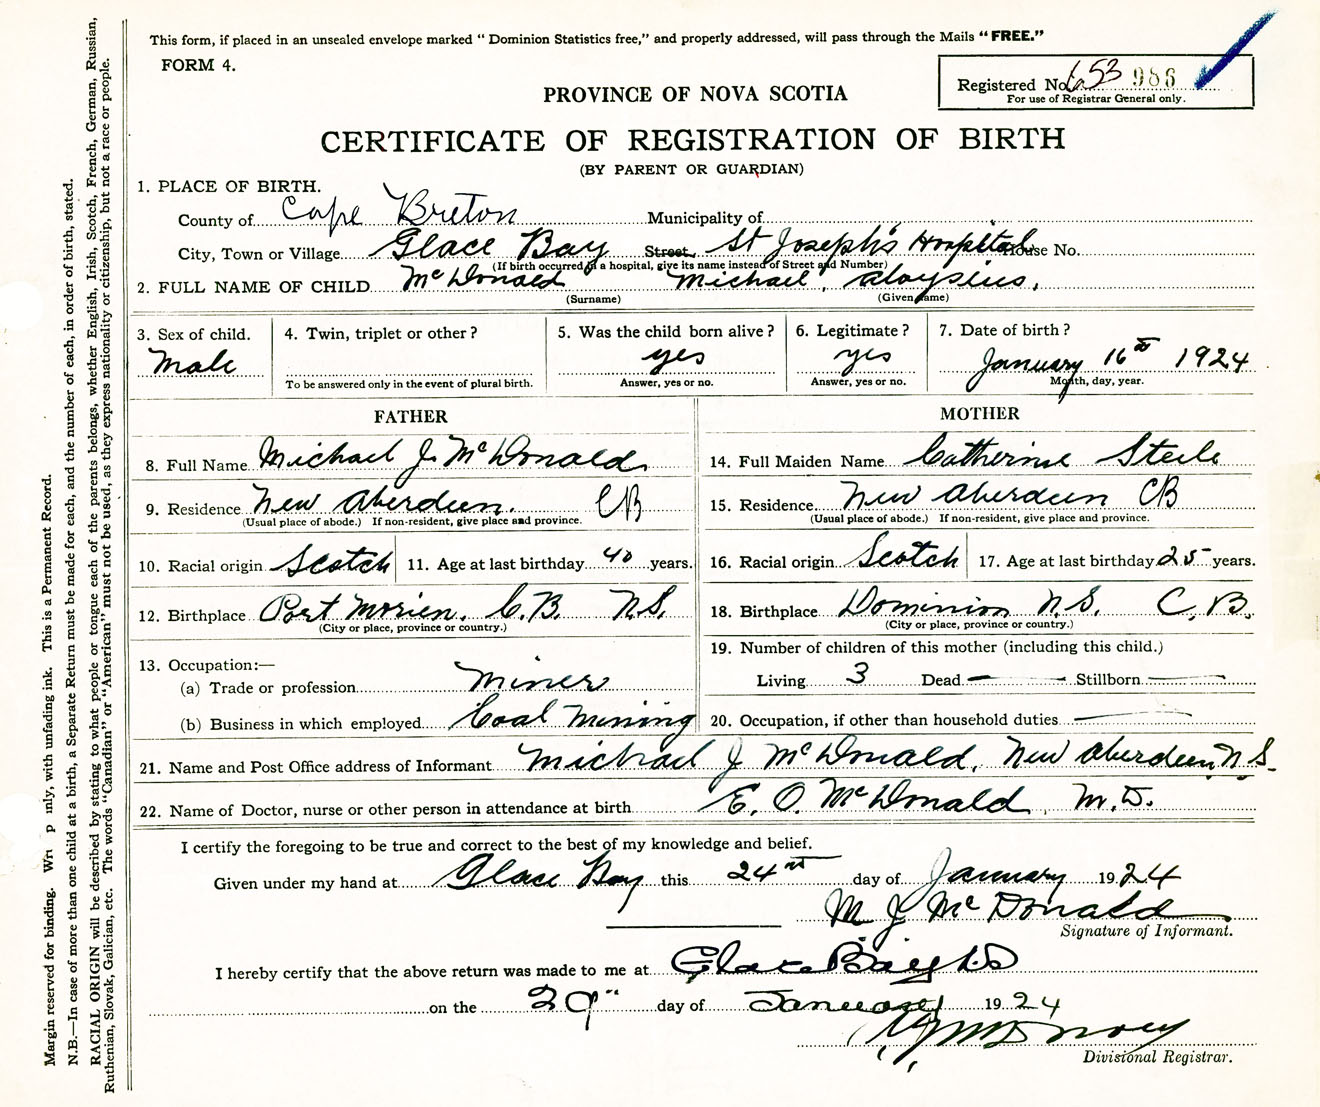 This form, if placed in an unsealed envelope marked "Dominion Statistics free," and properly addressed, will pass through the Mails "FREE."
FORM 4.
Registered No. 653 986
For use of Registrar General only.
PROVINCE OF NOVA SCOTIA
CERTIFICATE OF REGISTRATION OF BIRTH
(BY PARENT OR GUARDIAN)
1. PLACE OF BIRTH.
County of Cape Breton Municipality of
City, Town or Village Glace Bay Street St Joseph's Hospital House No.
(If birth occurred in a hospital, give its name instead of Street and Number)
2. FULL NAME OF CHILD McDonald Michael, Aloysius,
(Surname) (Given name)
3. Sex of child. 4. Twin, triplet or other? 5. Was the child born alive? 6. Legitimate? 7. Date of birth?
Male yes yes January 16th 1924
To be answered only in the event of plural birth. Answer, yes or no. Answer, yes or no. Month, day, year.
FATHER
8. Full Name Michael J. McDonald
9. Residence New Aberdeen. CB
(Usual place of abode.) If non-resident, give place and province.
10. Racial origin Scotch 11. Age at last birthday 40 years.
12. Birthplace Port Morien, C.B. N.S.
(City or place, province or country.)
13. Occupation:—
(a) Trade or profession Miner
(b) Business in which employed Coal Mining
MOTHER
14. Full Maiden Name Catherine Steele
15. Residence New Aberdeen CB
(Usual place of abode.) If non-resident, give place and province.
16. Racial origin Scotch 17. Age at last birthday 25 years.
18. Birthplace Dominion N.S. C.B.
(City or place, province or country.)
19. Number of children of this mother (including this child.)
Living 3 Dead — Stillborn —
20. Occupation, if other than household duties —
21. Name and Post Office address of Informant Michael J McDonald, New Aberdeen, N.S.
22. Name of Doctor, nurse or other person in attendance at birth E. O. McDonald, M.D.
I certify the foregoing to be true and correct to the best of my knowledge and belief.
Given under my hand at Glace Bay this 24th day of January 1924
M J McDonald
Signature of Informant.
I hereby certify that the above return was made to me at Glace Bay NS
on the 29" day of January 1924
Divisional Registrar.
Margin reserved for binding. Wri p nly, with unfading ink. This is a Permanent Record.
N.B.—In case of more than one child at a birth, a Separate Return must be made for each, and the number of each, in order of birth, stated.
RACIAL ORIGIN will be described by stating to what people or tongue each of the parents belongs, whether English, Irish, Scotch, French, German, Russian,
Ruthenian, Slovak, Galician, etc. The words "Canadian" or "American" must not be used, as they express nationality or citizenship, but not a race or people.